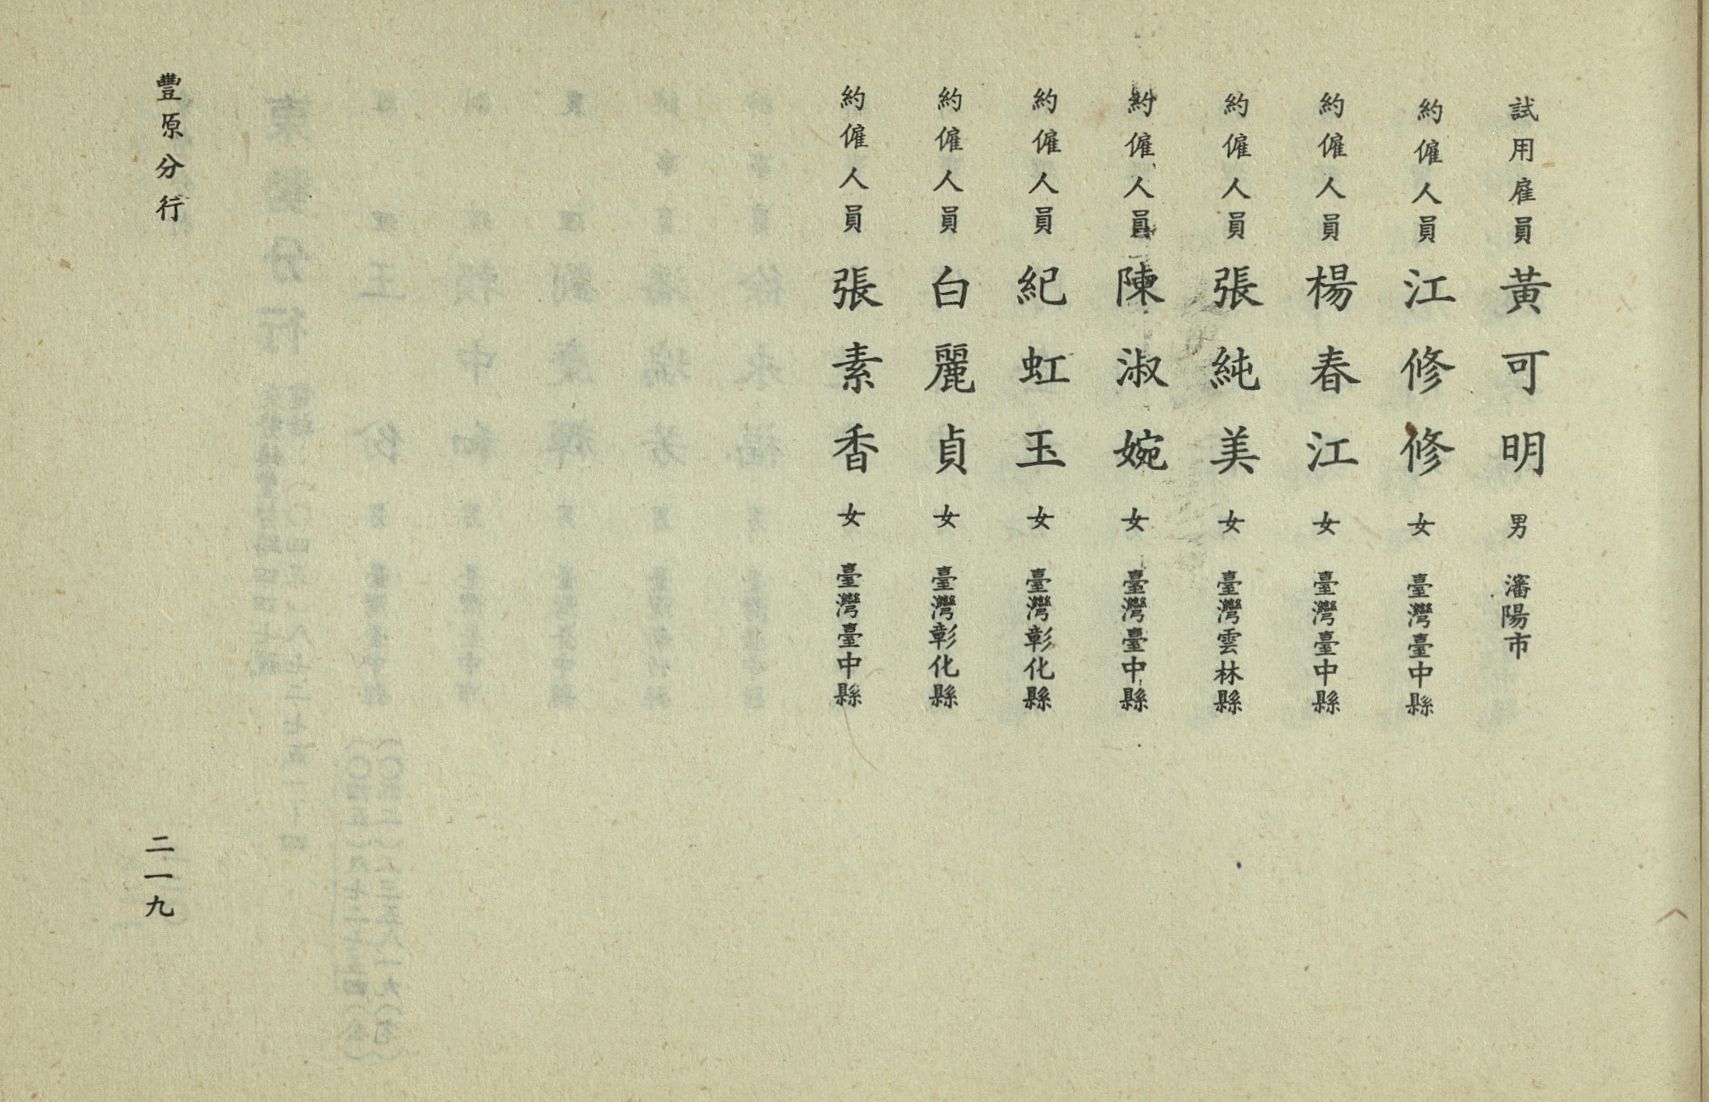 試用雇員 黃可明 男 瀋陽市
約僱人員 江修修 女 臺灣臺中縣
約僱人員 楊春江 女 臺灣臺中縣
約僱人員 張純美 女 臺灣雲林縣
約僱人員 陳淑婉 女 臺灣臺中縣
約僱人員 紀虹玉 女 臺灣彰化縣
約僱人員 白麗貞 女 臺灣彰化縣
約僱人員 張素香 女 臺灣臺中縣
豐原分行
二一九